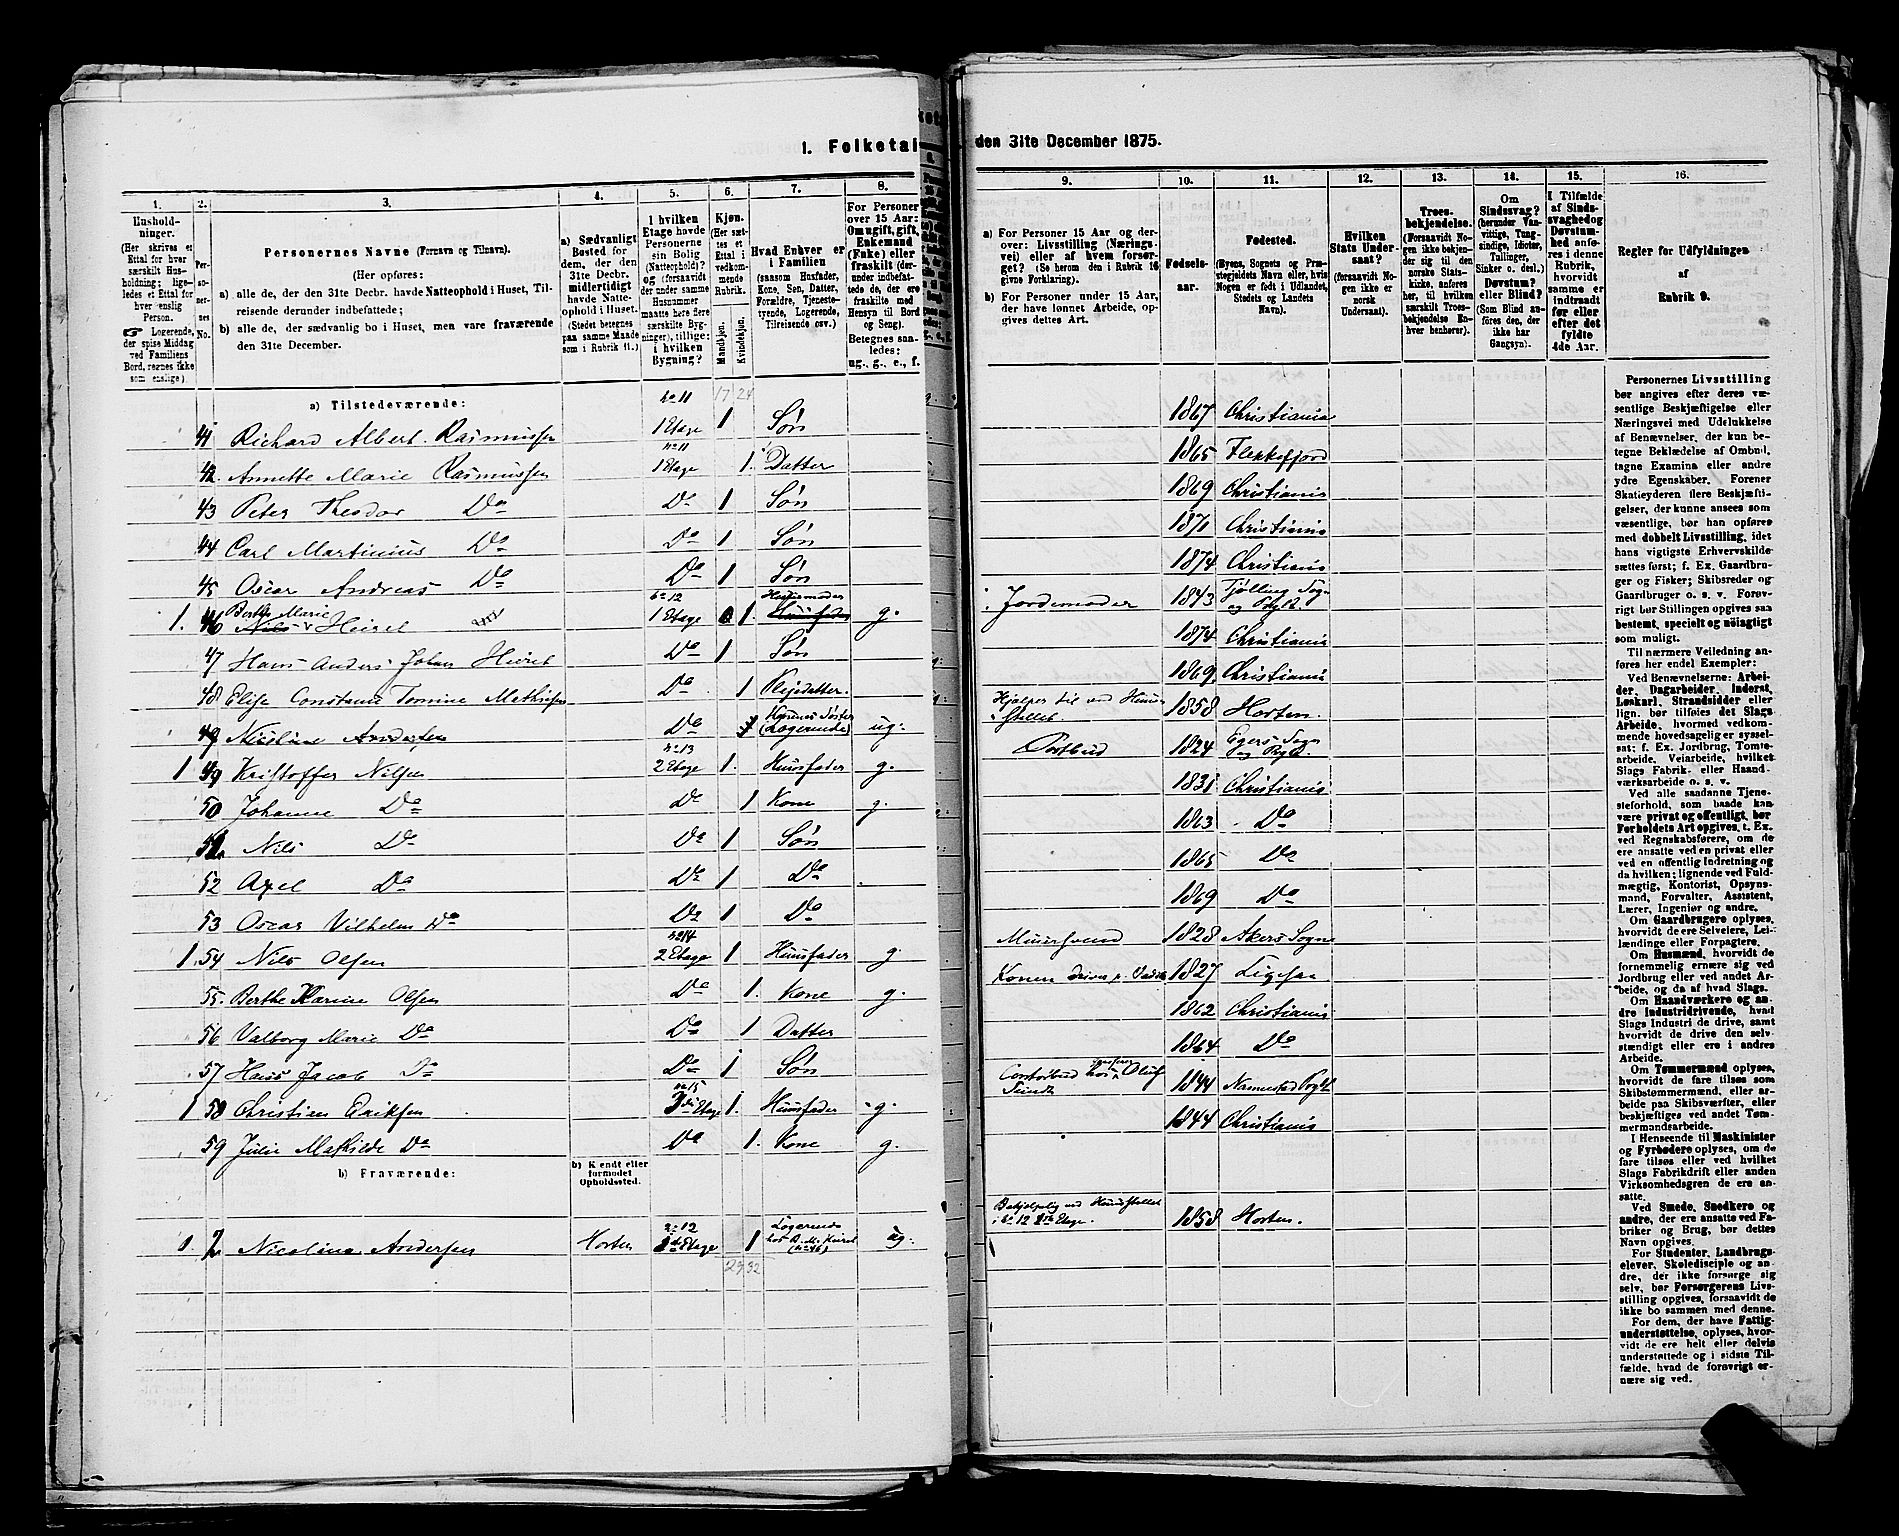 1. Folketal den 31te December 1875.
1. 2. 3. 4. 5. 6. 7. 8. 9. 10. 11. 12. 13. 14. 15. 16.
Hushold-
ninger.
(Her skrives et
Ettal for hver
særskilt Hus-
holdning; lige-
ledes et Ettal for
hver enslig
Person.
☞ Logerende,
der spise Middag
ved Familiens
Bord, regnes ikke
som enslige).
Per-
so-
ner-
nes
No.
Personernes Navne (Fornavn og Tilnavn).
(Her opføres:
a) alle de, der den 31te Decbr. havde Natteophold i Huset, Til-
reisende derunder indbefattede;
b) alle de, der sædvanlig bo i Huset, men vare fraværende
den 31te December.
a) Sædvanligt
Bosted for
dem, der den
31te Decbr.
midlertidigt
havde Natte-
ophold i Huset.
(Stedet betegnes
paa samme Maade
som i Rubrik 11.)
I hvilken
Etage havde
Personerne
sin Bolig
(Natteophold)?
og (forsaavidt
der under samme
Husnummer
maatte høre flere
særskilte Byg-
ninger), tillige:
i hvilken
Bygning?
Kjøn.
(Her sæt-
tes et
Ettal i
vedkom-
mende
Rubrik.
Mandkjøn.
Kvindekjøn.
Hvad Enhver er
i Familien
(saasom Husfader,
Kone, Søn, Datter,
Forældre, Tjeneste-
tyende, Logerende,
Tilreisende osv.)
For Personer
over 15 Aar:
Om ugift, gift,
Enkemand
(Enke) eller
fraskilt (der-
under indbefat-
tede de, der ere
fraskilte med
Hensyn til Bord
og Seng).
Betegnes saa-
ledes:
ug., g., e., f.
a) For Personer 15 Aar og der-
over: Livsstilling (Nærings-
vei) eller af hvem forsør-
get? (Se herom den i Rubrik 16
givne Forklaring).
b) For Personer under 15 Aar,
der have lønnet Arbeide, op-
gives dettes Art.
Fødsels-
aar.
Fødested.
(Byens, Sognets og Præ-
stegjeldets Navn eller, hvis
Nogen er født i Udlandet,
Stedets og Landets
Navn).
Hvilken
Stats Under-
saat?
(forsaavidt No-
gen ikke er
norsk
Undersaat).
Troes-
bekjendelse.
(Forsaavidt No-
gen ikke bekjen-
der sig til den
norske Stats-
kirke, anføres
her, til hvilken
særskilt Troes-
bekjendelse En-
hver henhører).
Om
Sindssvag?
(herunder Van-
vittige, Tung-
sindige, Idioter,
Tullinger,
Sinker o. desl.)
Døvstum?
eller Blind?
(Som Blind an-
føres den, der
ikke har
Gangsyn).
I Tilfælde
af Sinds-
svaghed og
Døvstum-
hed anfø-
res i denne
Rubrik,
hvorvidt
samme er
indtraadt
før eller
efter det
fyldte
4de Aar.
Regler for Udfyldningen
af
Rubrik 9.
a) Tilstedeværende: No 11 17 24
41 Richard Albert Rasmussen 1 Etage 1 Søn 1867 Christiania
42. Annette Marie Rasmussen No 11 1 Etage 1. Datter 1865 Flekkefjord
43 Peter Theodor Do Do 1 Søn 1869 Christiania
44 Carl Martinius Do Do 1 Søn 1871 Christiania
45 Oscar Andreas Do Do 1 Søn 1874 Christiania
1. 46 Berthe Marie Heirel No 12 1 Etage 1. Huusmoder g. Jordemoder 1843 Tjølling Sogn og Prgld.
47 Hans Anders Johan Heirel Do 1 Søn 1874 Christiania
48 Elise Constance Tomine Mathisen Do 1 Pleiedatter. 1869 Christiania
49 Nicoline Andersen Do 1 Konens Søster (Logerende) ug. Hjælper til ved Huus-Stellet 1858 Horten.
1 49 Kristoffer Nilsen No 13 2 Etage 1. Huusfader g. Postbud 1824 Egers Sogn og Prgld.
50 Johanne Do Do 1 Kone g. 1831 Christiania
51. Nils Do Do 1 Søn 1863 Do
52 Axel Do Do 1 Do 1865 Do
53 Oscar Vilhelm Do Do 1 Do 1869 Do
1. 54 Nils Olsen No 14 2 Etage 1 Huusfader g. Muursvend 1828 Akers Sogn
55. Berthe Karine Olsen Do 1. Kone g. Konen driver p. 1827
56 Valborg Marie Do Do 1 Datter 1862 Christiania
57 Hans Jacob Do Do 1 Søn 1864 Do
1 58 Christian Eriksen No 15 Etage 1. Huusfader g. Contorbud hos Oluf 1844 Nannestad Prgld.
59 Julie Mathilde Do Do 1. Kone g. 1844 Christiania
b) Fraværende: b) Kendt eller
formodet
Opholdssted.
1. 2. Nicoline Andersen Horten No 12 Etage 1 Logerende hos B. M. Heirel (No 46) ug. Behjelpelig ved Huusstellet i No 12 Etage. 1858 Horten.
29 32
Personernes Livsstilling
bør angives efter deres væ-
sentlige Beskjæftigelse eller
Næringsvei med Udelukkelse
af Benævnelser, der kun be-
tegne Beklædelse af Ombud,
tagne Examina eller andre
ydre Egenskaber. Forener
Skatteyderen flere Beskjæfti-
gelser, der kunne ansees som
væsentlige, bør han opføres
med dobbelt Livsstilling, idet
hans vigtigste Erhvervskilde
sættes først; f. Ex. Gaardbru-
ger og Fisker; Skibsreder og
Gaardbruger o. s. v. Forøv-
rigt bør Stillingen opgives saa
bestemt, specielt og nöiagtigt
som muligt.
Til nærmere Veiledning an-
føres her endel Exempler:
Ved Benævnelserne: Arbei-
der, Dagarbeider, Inderst,
Løskarl, Strandsidder eller
lign. bør tilføies det Slags
Arbeide, hvormed vedkom-
mende hovedsagelig er syssel-
sat; f. Ex. Jordbrug, Tomte-
arbeide, Veiarbeide, hvilket
Slags Fabrik- eller Haand-
værksarbeide o. s. v.
Ved alle saadanne Tjene-
steforhold, som baade kan
være privat og offentligt, bør
Forholdets Art opgives, t. Ex.
ved Regnskabsførere, om de
ere ansatte ved en privat eller
ved en offentlig Indretning og
da hvilken; lignende ved Fuld-
mægtig, Kontorist, Opsyns-
mand, Forvalter, Assistent,
Lærer, Ingeniør og andre.
Om Gaardbrugere oplyses,
hvorvidt de ere Selveiere, Lei-
lændinge eller Forpagtere.
Om Husmænd, hvorvidt de
fornemmelig ernære sig ved
Jordbrug eller ved andet Ar-
beide, og da af hvad Slags.
Om Haandværkere og an-
dre Industridrivende, hvad
Slags Industri de drive, samt
hvorvidt de drive den selv-
stændigt eller ere i andres
Arbeide.
Om Tømmermænd oplyses,
hvorvidt de fare tilsøs som
Skibstømmermænd, eller ar-
beide paa Skibsværfter, eller
beskjæftiges ved andet Tøm-
mermandsarbeide.
I Henseende til Maskinister
og Fyrbødere oplyses, om de
fare tilsøs eller ved hvilket
Slags Fabrikdrift eller anden
Virksomhedsgren de ere an-
satte.
Ved Smede, Snedkere og
andre, der ere ansatte ved Fa-
briker og Brug, bør dettes
Navn opgives.
For Studenter, Landbrugs-
elever, Skoledisciple og an-
dre, der ikke forsørge sig
selv, bør Forsørgerens Livs-
stilling opgives, forsaavidt de
ikke bo sammen med denne.
For dem, der have Fattig-
understøttelse, oplyses, hvor-
vidt de ere helt eller delvis
understøttede og i sidste Til-
fælde, hvad de forøvrigt er-
nære sig ved.